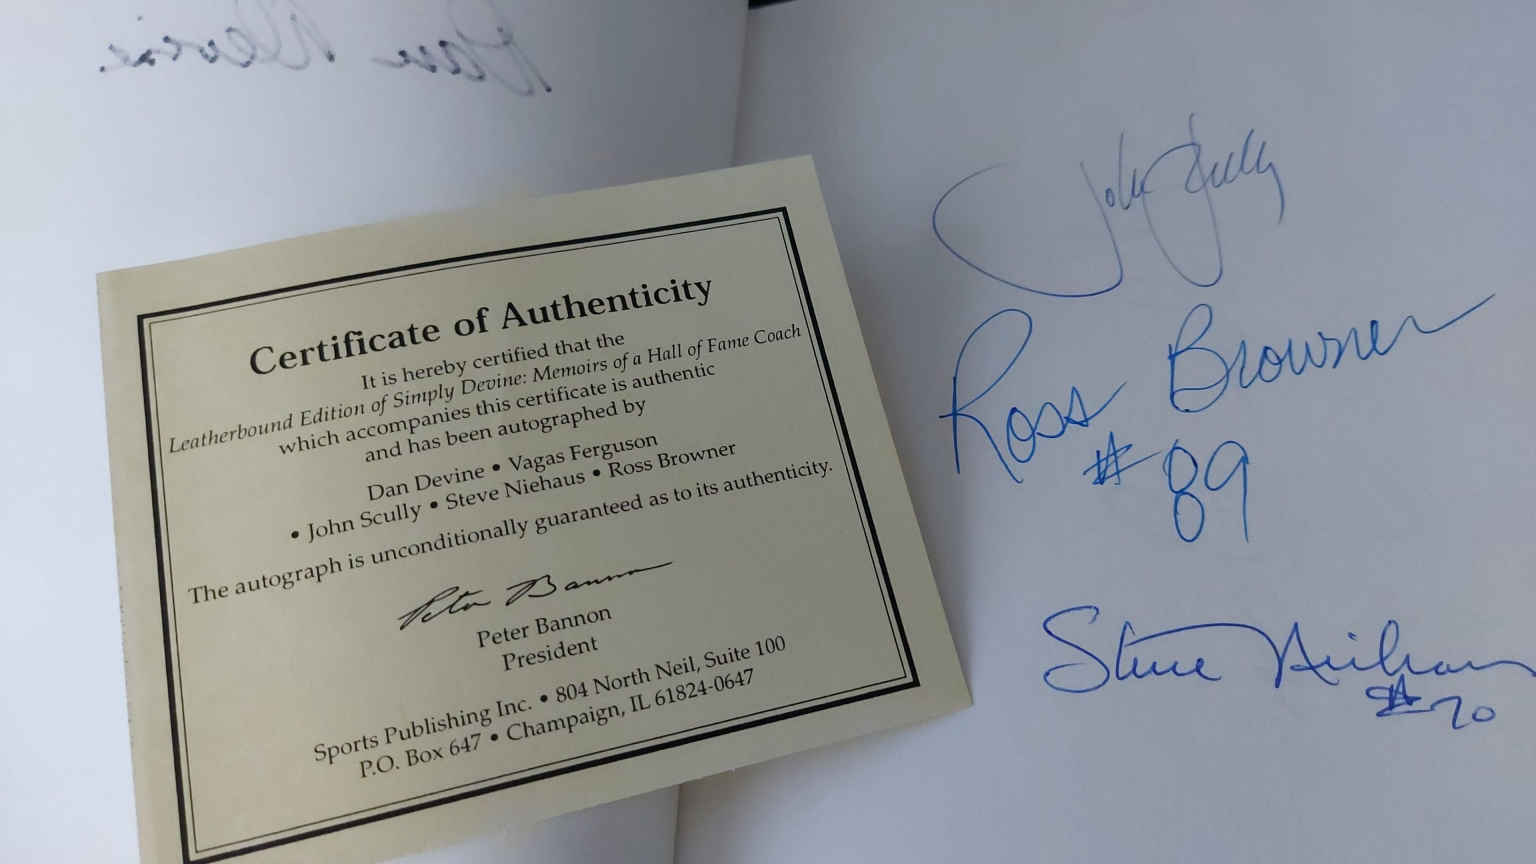 Dan Devine
Certificate of Authenticity
It is hereby certified that the
Leatherbound Edition of Simply Devine: Memoirs of a Hall of Fame Coach
which accompanies this certificate is authentic
and has been autographed by
Dan Devine • Vagas Ferguson
• John Scully • Steve Niehaus • Ross Browner
The autograph is unconditionally guaranteed as to its authenticity.
Peter Bannon
Peter Bannon
President
Sports Publishing Inc. • 804 North Neil, Suite 100
P.O. Box 647 • Champaign, IL 61824-0647
John Scully
Ross Browner
#89
Steve Niehaus
#70